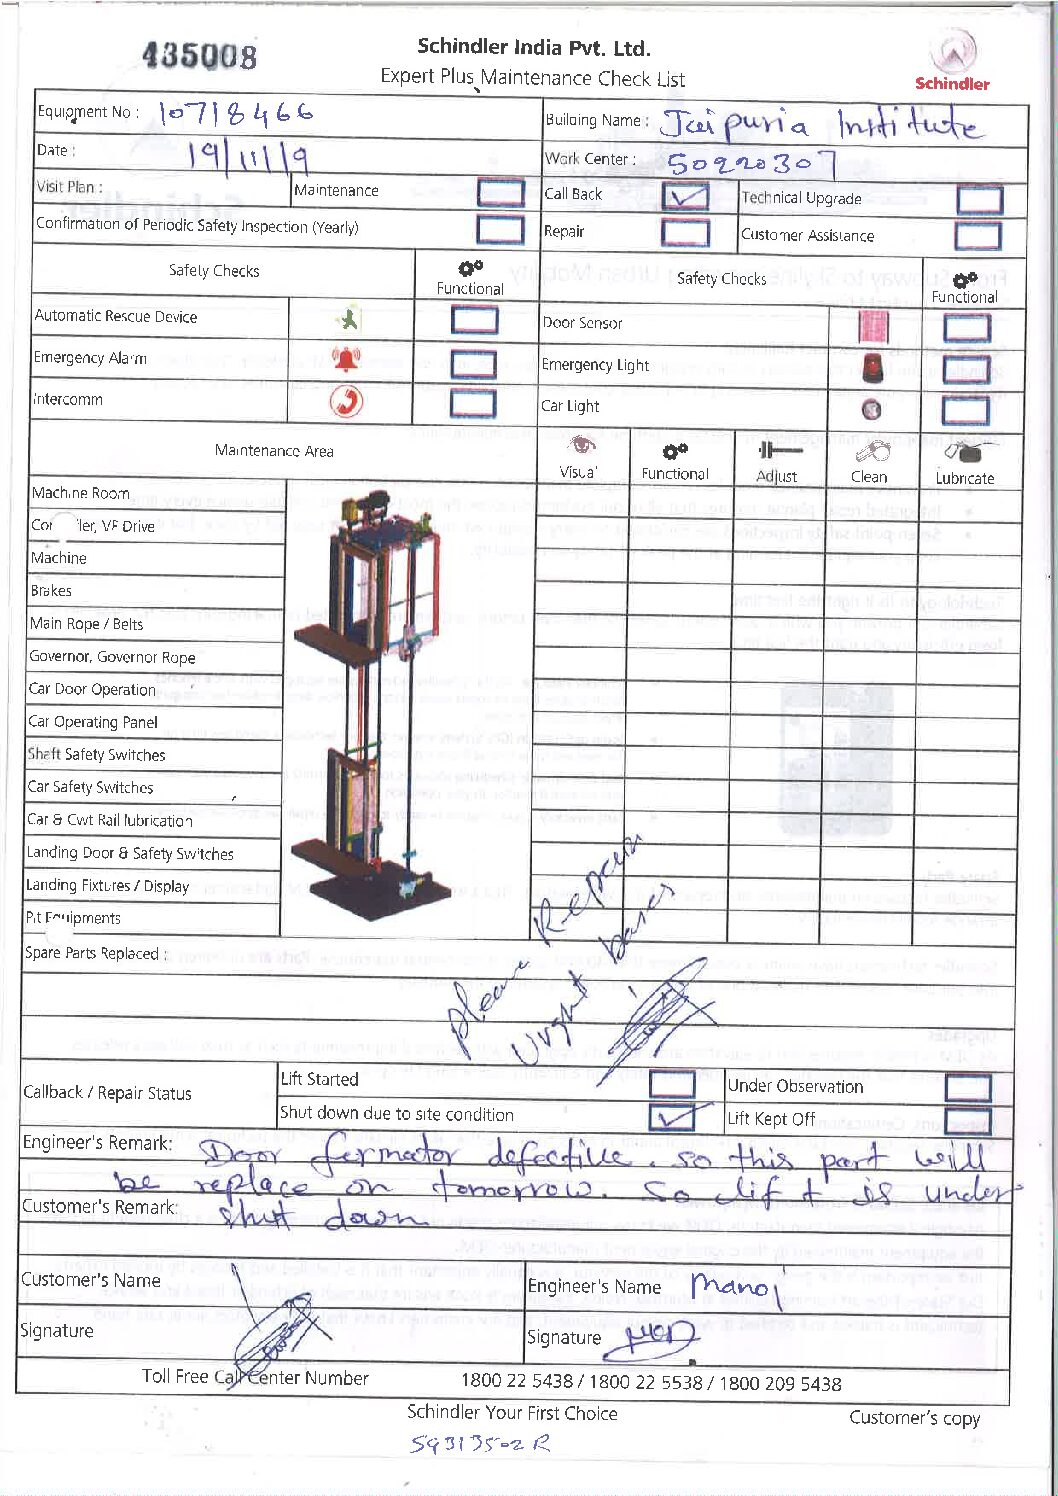 435008
Schindler India Pvt. Ltd.
Expert Plus Maintenance Check List
Schindler
Equipment No : 10718466
Building Name : Jaipuria Institute
Date : 19/11/19
Work Center : 50220307
Visit Plan : Maintenance Call Back Technical Upgrade
Confirmation of Periodic Safety Inspection (Yearly) Repair Customer Assistance
Safety Checks Functional Safety Checks Functional
Automatic Rescue Device Door Sensor
Emergency Alarm Emergency Light
Intercomm Car Light
Maintenance Area Visual Functional Adjust Clean Lubricate
Machine Room
VF Drive
Machine
Brakes
Main Rope / Belts
Governor, Governor Rope
Car Door Operation
Car Operating Panel
Shaft Safety Switches
Car Safety Switches
Car & Cwt Rail lubrication
Landing Door & Safety Switches
Landing Fixtures / Display
Pit Equipments
Spare Parts Replaced :
please Repair
Urght bases
Callback / Repair Status
Lift Started Under Observation
Shut down due to site condition Lift Kept Off
Engineer's Remark: Door fermator defective. so this part will
be replace on tomorrow. So lift is under
Customer's Remark: shut down
Customer's Name Engineer's Name Manoj
Signature Signature
Toll Free Call Center Number 1800 22 5438 / 1800 22 5538 / 1800 209 5438
Schindler Your First Choice Customer's copy
59313502R